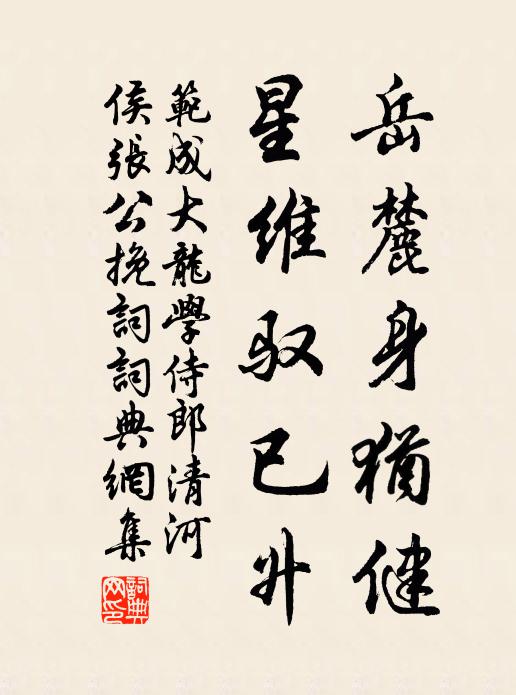 岳麓身猶健
星維馭已升
範成大龍學侍郎清河
侯張公挽詞詞典網集